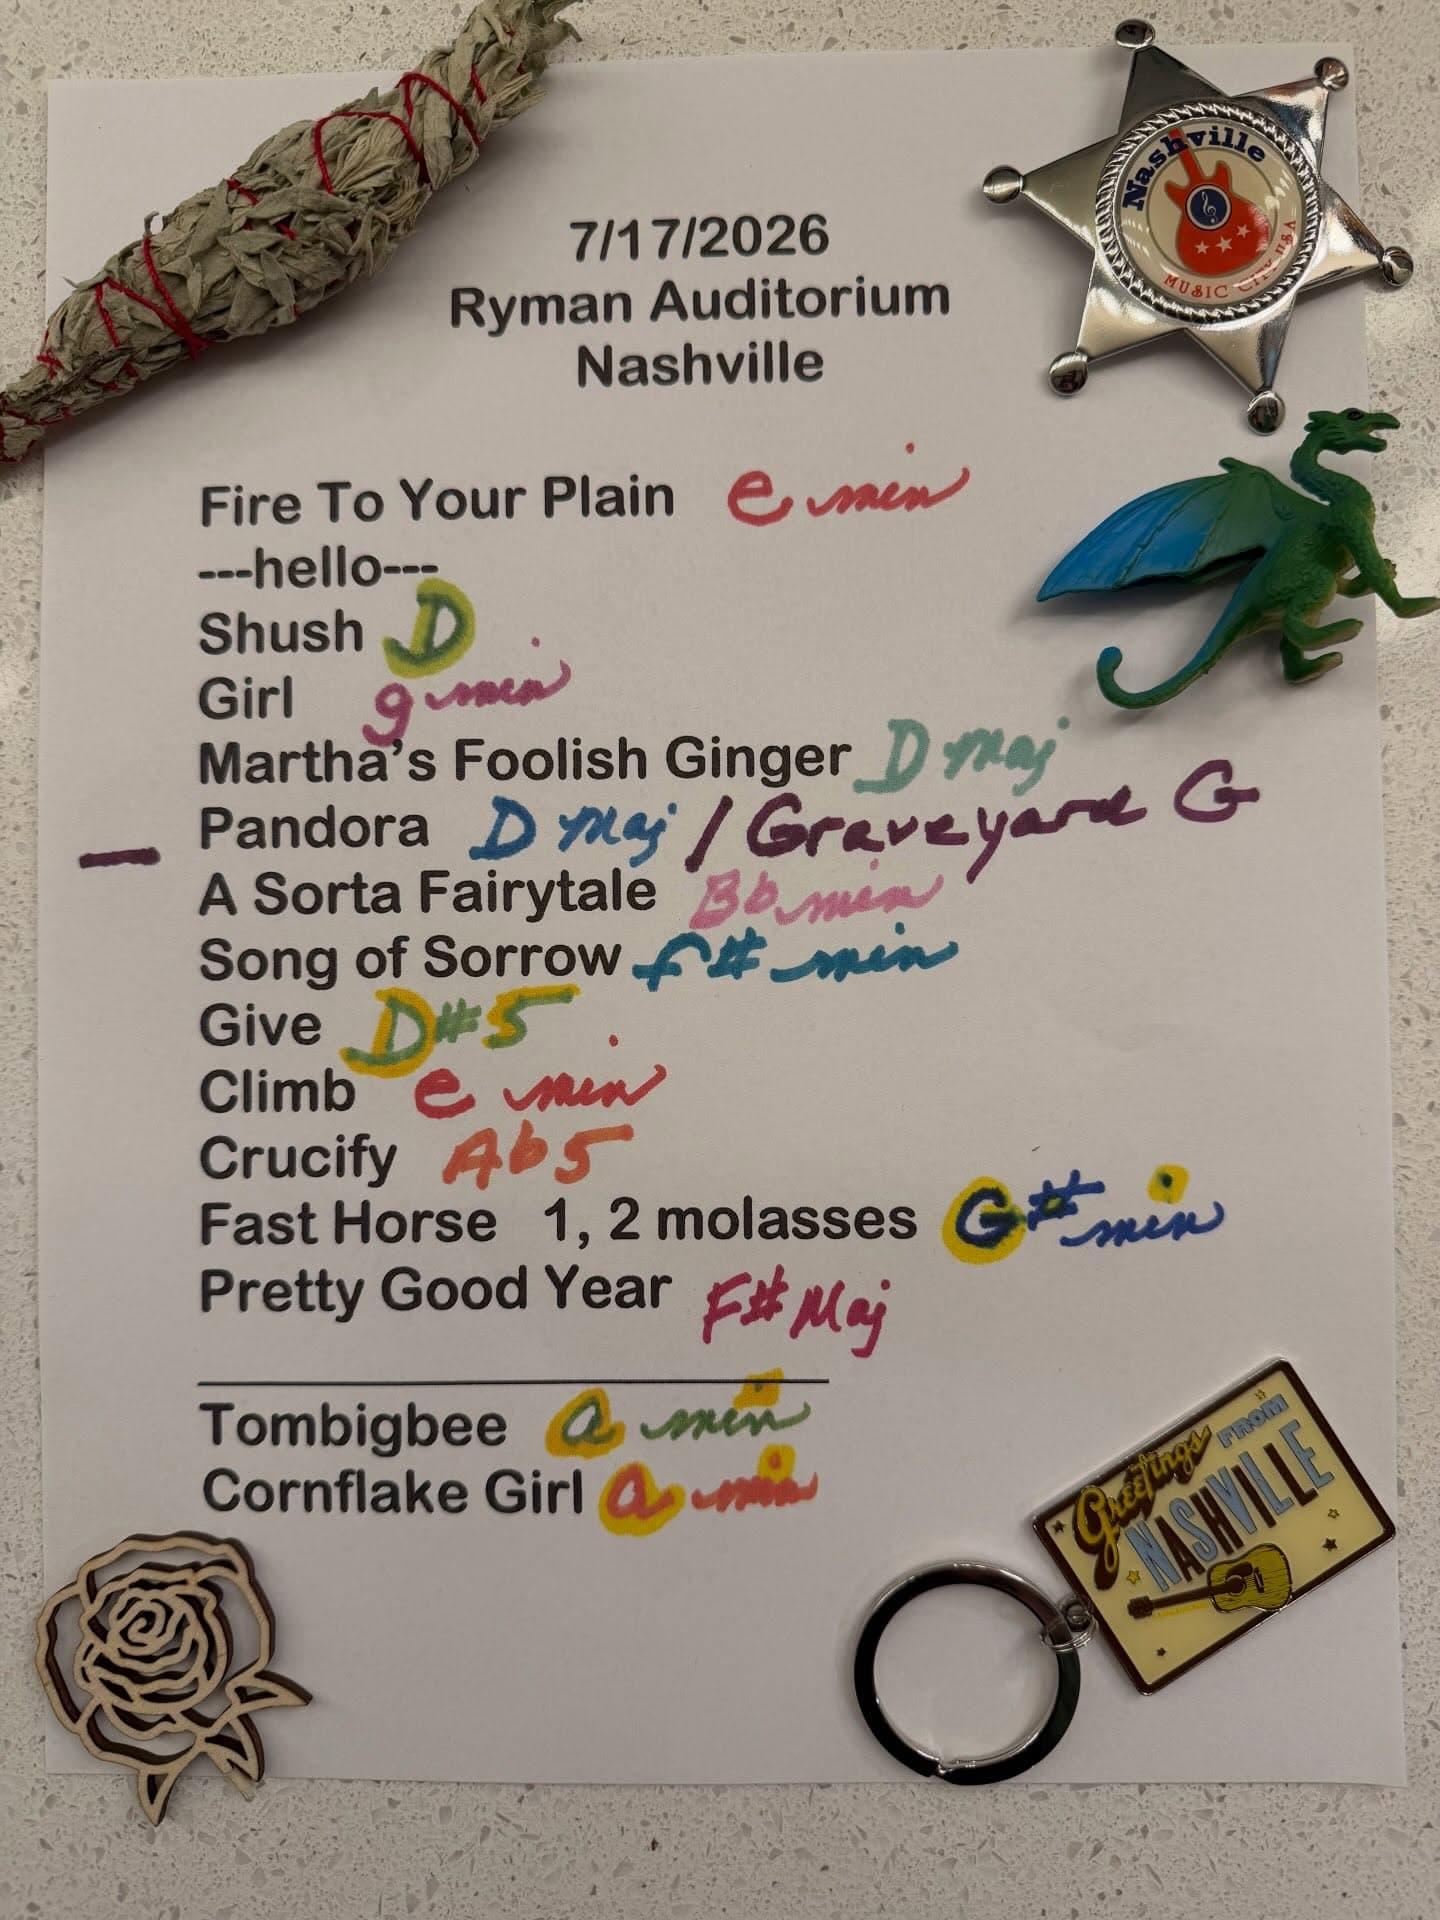 Nashville
MUSIC CITY USA
7/17/2026
Ryman Auditorium
Nashville
Fire To Your Plain e min
---hello---
Shush D
Girl g min
Martha's Foolish Ginger D Maj
Pandora D Maj / Graveyard G
A Sorta Fairytale Bb min
Song of Sorrow f# min
Give D#5
Climb e min
Crucify Ab5
Fast Horse 1, 2 molasses G# min
Pretty Good Year F# Maj
Tombigbee a min
Cornflake Girl a min
Greetings FROM
NASHVILLE